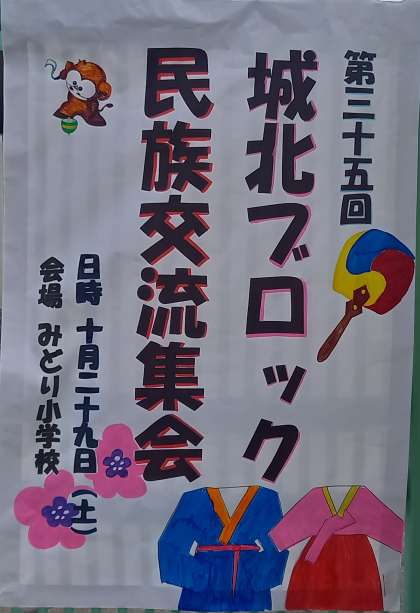 第三十五回
城北ブロック
民族交流集会
日時 十月二十九日(土)
会場 みどり小学校